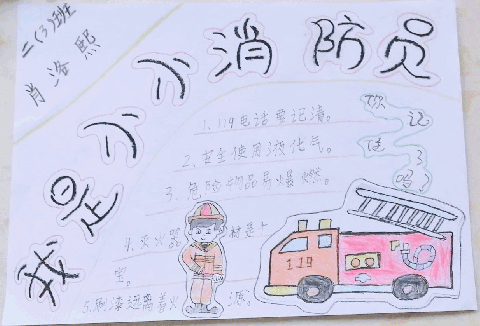 二(3)班
肖洛熙
我是小小消防员
1.119电话要记清。
2.安全使用液化气。
3.危险物品易爆燃。
4.灭火器材是上宝。
5.刷漆远离着火源。
你记住了吗
119